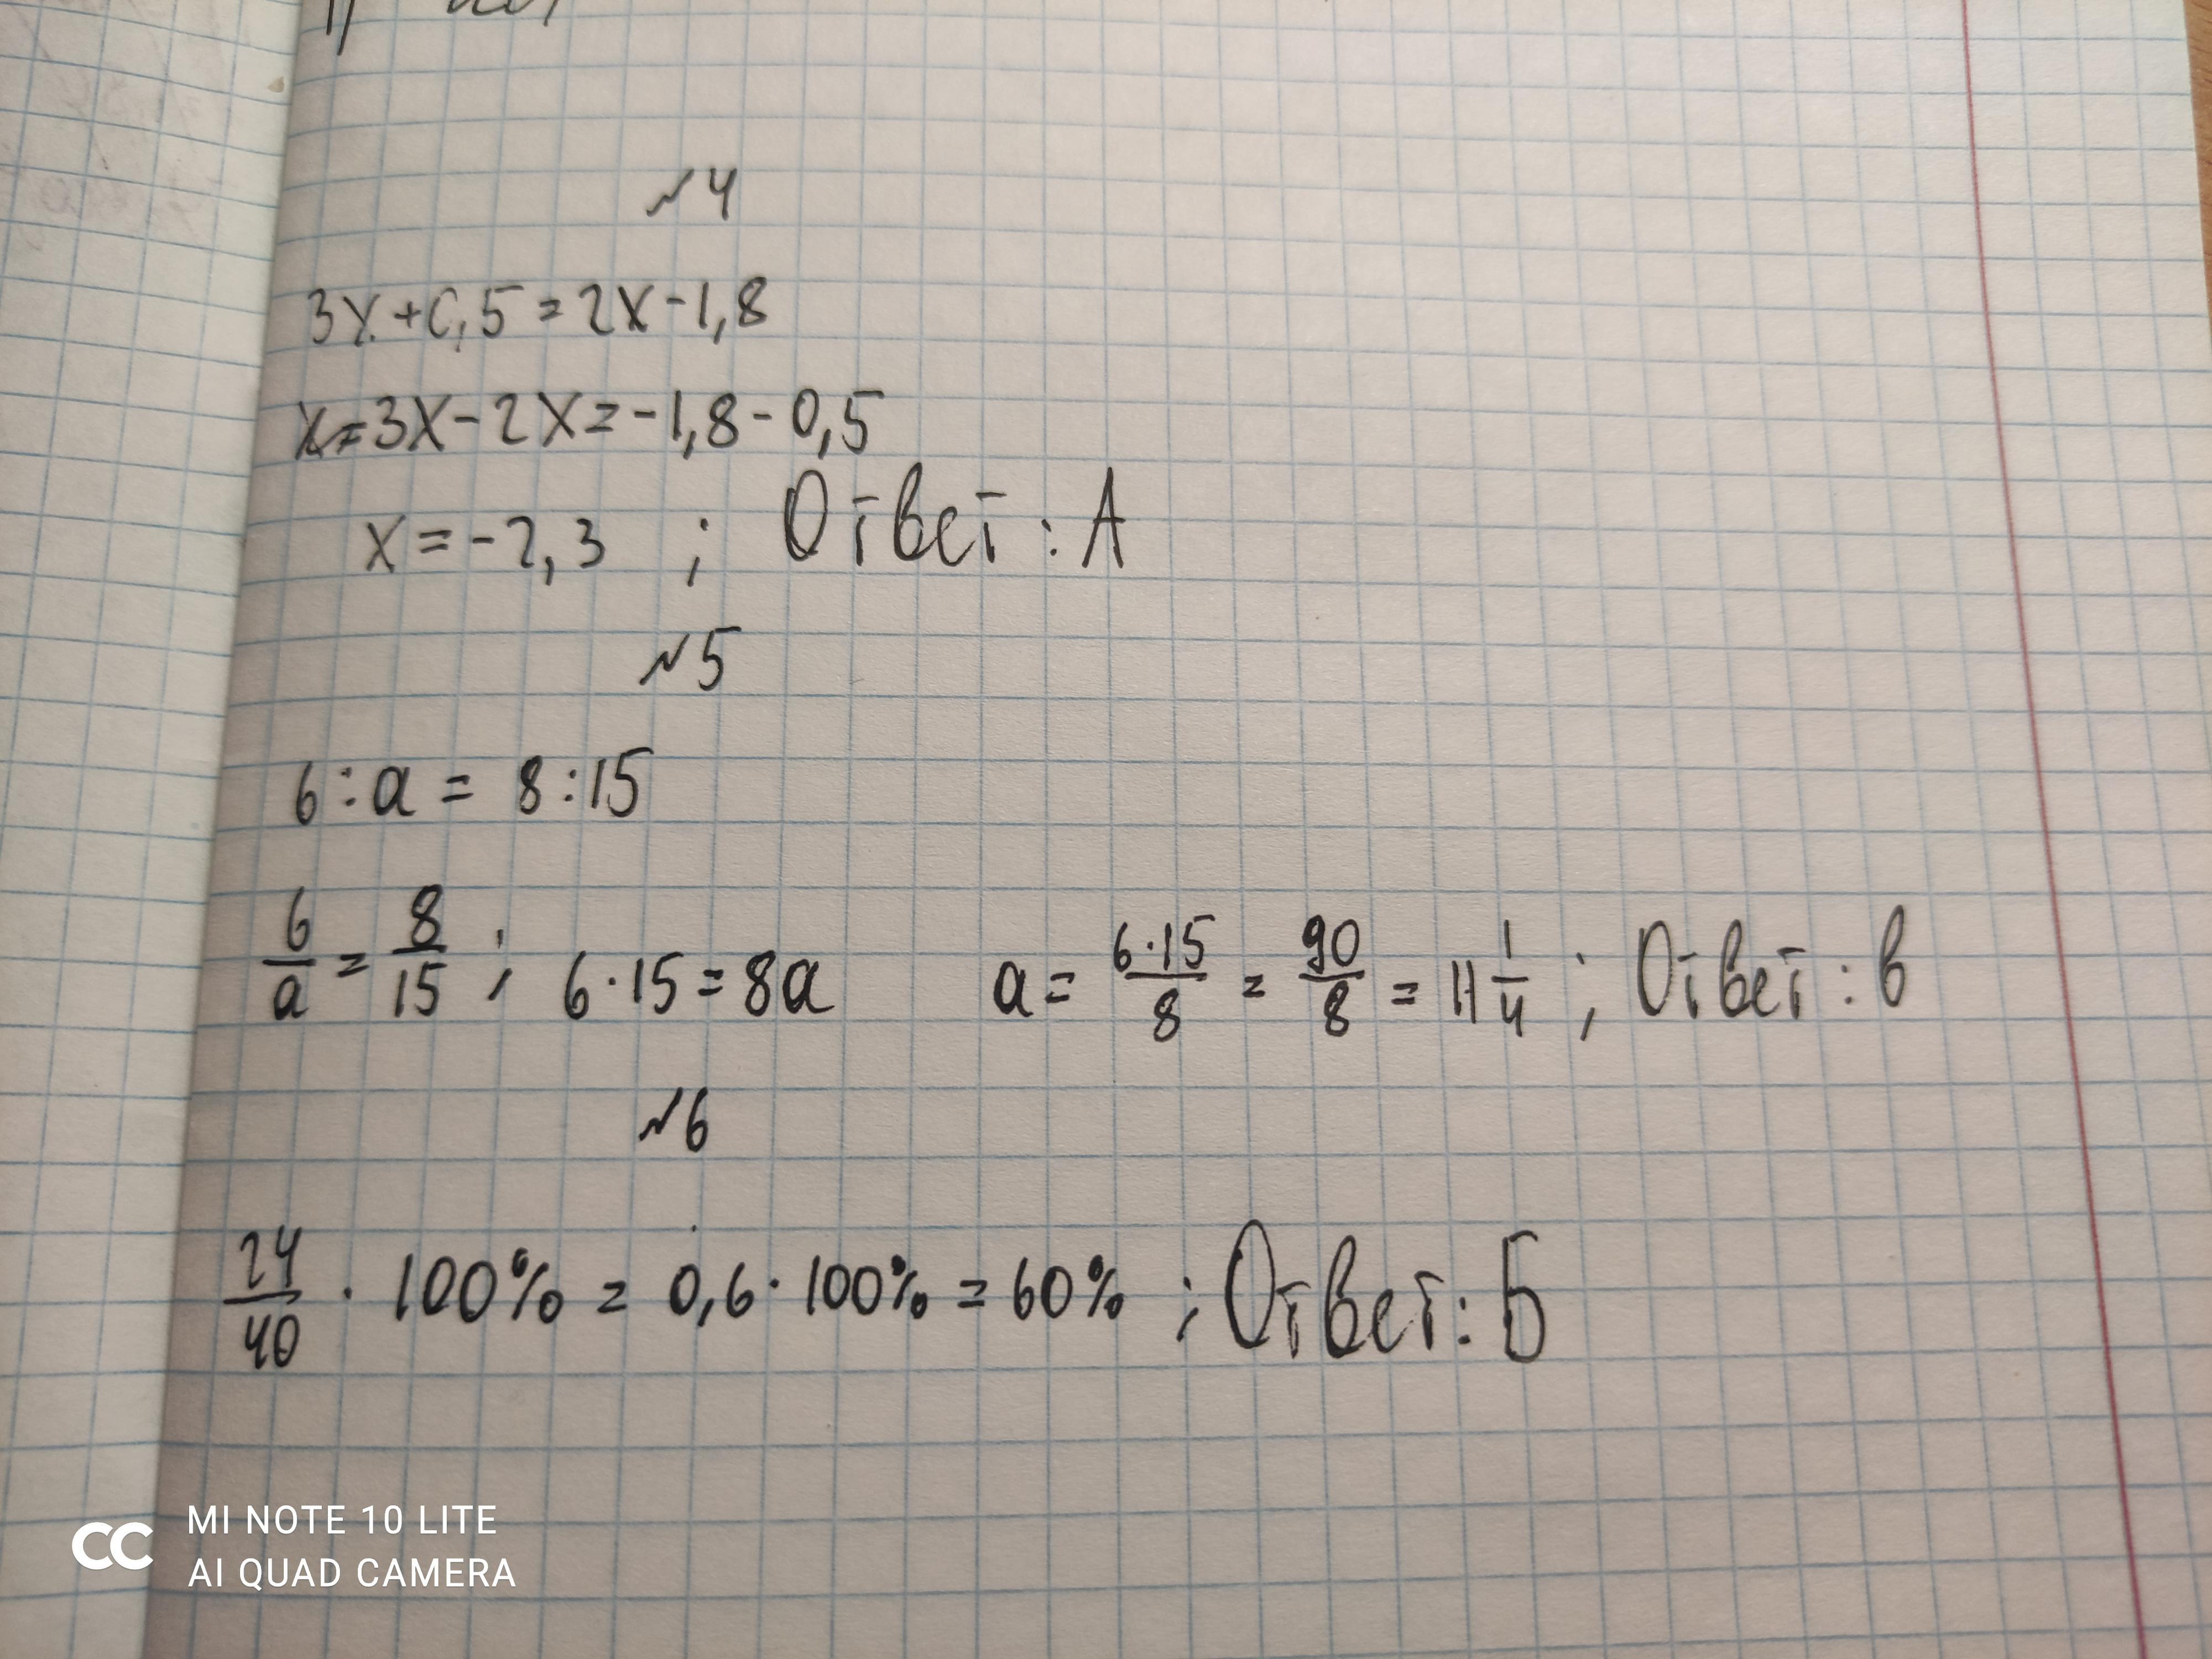 №4
3x+0,5=2x-1,8
3x-2x=-1,8-0,5
x=-2,3 ; Ответ: А
№5
6:a=8:15
6/a=8/15; 6·15=8a a=6·15/8=90/8=11 1/4; Ответ: В
№6
24/40·100%=0,6·100%=60%; Ответ: Б
MI NOTE 10 LITE
AI QUAD CAMERA